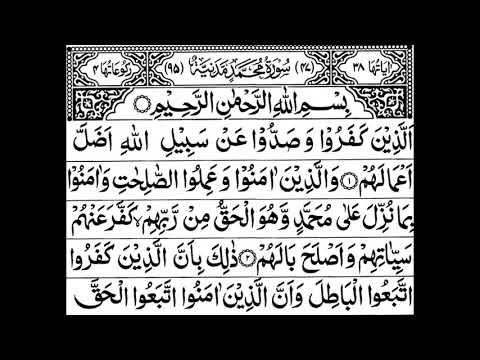 اٰيَاتُهَا ٣٨ (٤٧) سُوْرَةُ مُحَمَّدٍ مَدَنِيَّةٌ (٩٥) رُكُوْعَاتُهَا ٤
بِسْمِ اللّٰهِ الرَّحْمٰنِ الرَّحِيْمِ ۝
اَلَّذِيْنَ كَفَرُوْا وَصَدُّوْا عَنْ سَبِيْلِ اللّٰهِ اَضَلَّ
اَعْمَالَهُمْ ۝١ وَالَّذِيْنَ اٰمَنُوْا وَعَمِلُوا الصّٰلِحٰتِ وَاٰمَنُوْا
بِمَا نُزِّلَ عَلٰى مُحَمَّدٍ وَّهُوَ الْحَقُّ مِنْ رَّبِّهِمْ ۙ كَفَّرَ عَنْهُمْ
سَيِّاٰتِهِمْ وَاَصْلَحَ بَالَهُمْ ۝٢ ذٰلِكَ بِاَنَّ الَّذِيْنَ كَفَرُوا
اتَّبَعُوا الْبَاطِلَ وَاَنَّ الَّذِيْنَ اٰمَنُوا اتَّبَعُوا الْحَقَّ